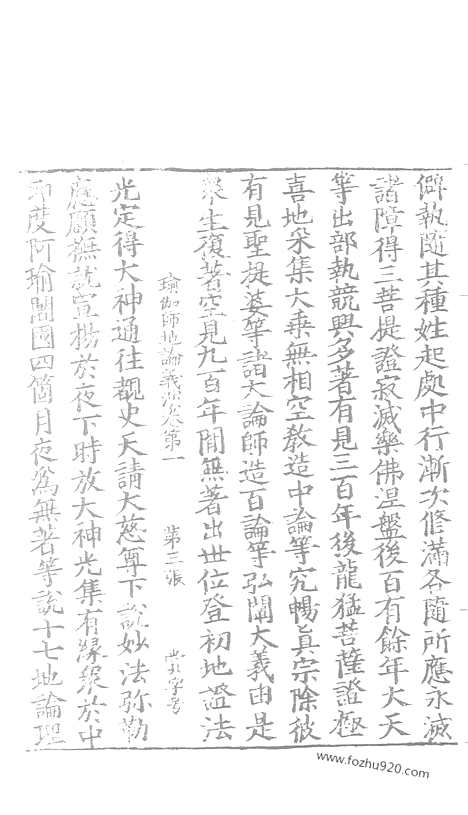 僻執隨其種姓起處中行漸次修滿各隨所應永滅
諸障得三菩提證寂滅樂佛涅盤後百有餘年大天
等出部執競興多著有見三百年後龍猛菩薩證極
喜地采集大乗無相空教造中論等究暢眞宗除彼
有見聖提婆等諸大論師造百論等弘闡大義由是
衆生復著空見九百年間無著出世位登初地證法
瑜伽師地論義演卷第一 第三張 字号
光定得大神通往覩史天請大慈尊下說妙法弥勒
應願撫就宣揚於夜下時放大神光集有緣衆於中
印度阿瑜闍國四箇月夜爲無著等說十七地論理
www.fozhu920.com